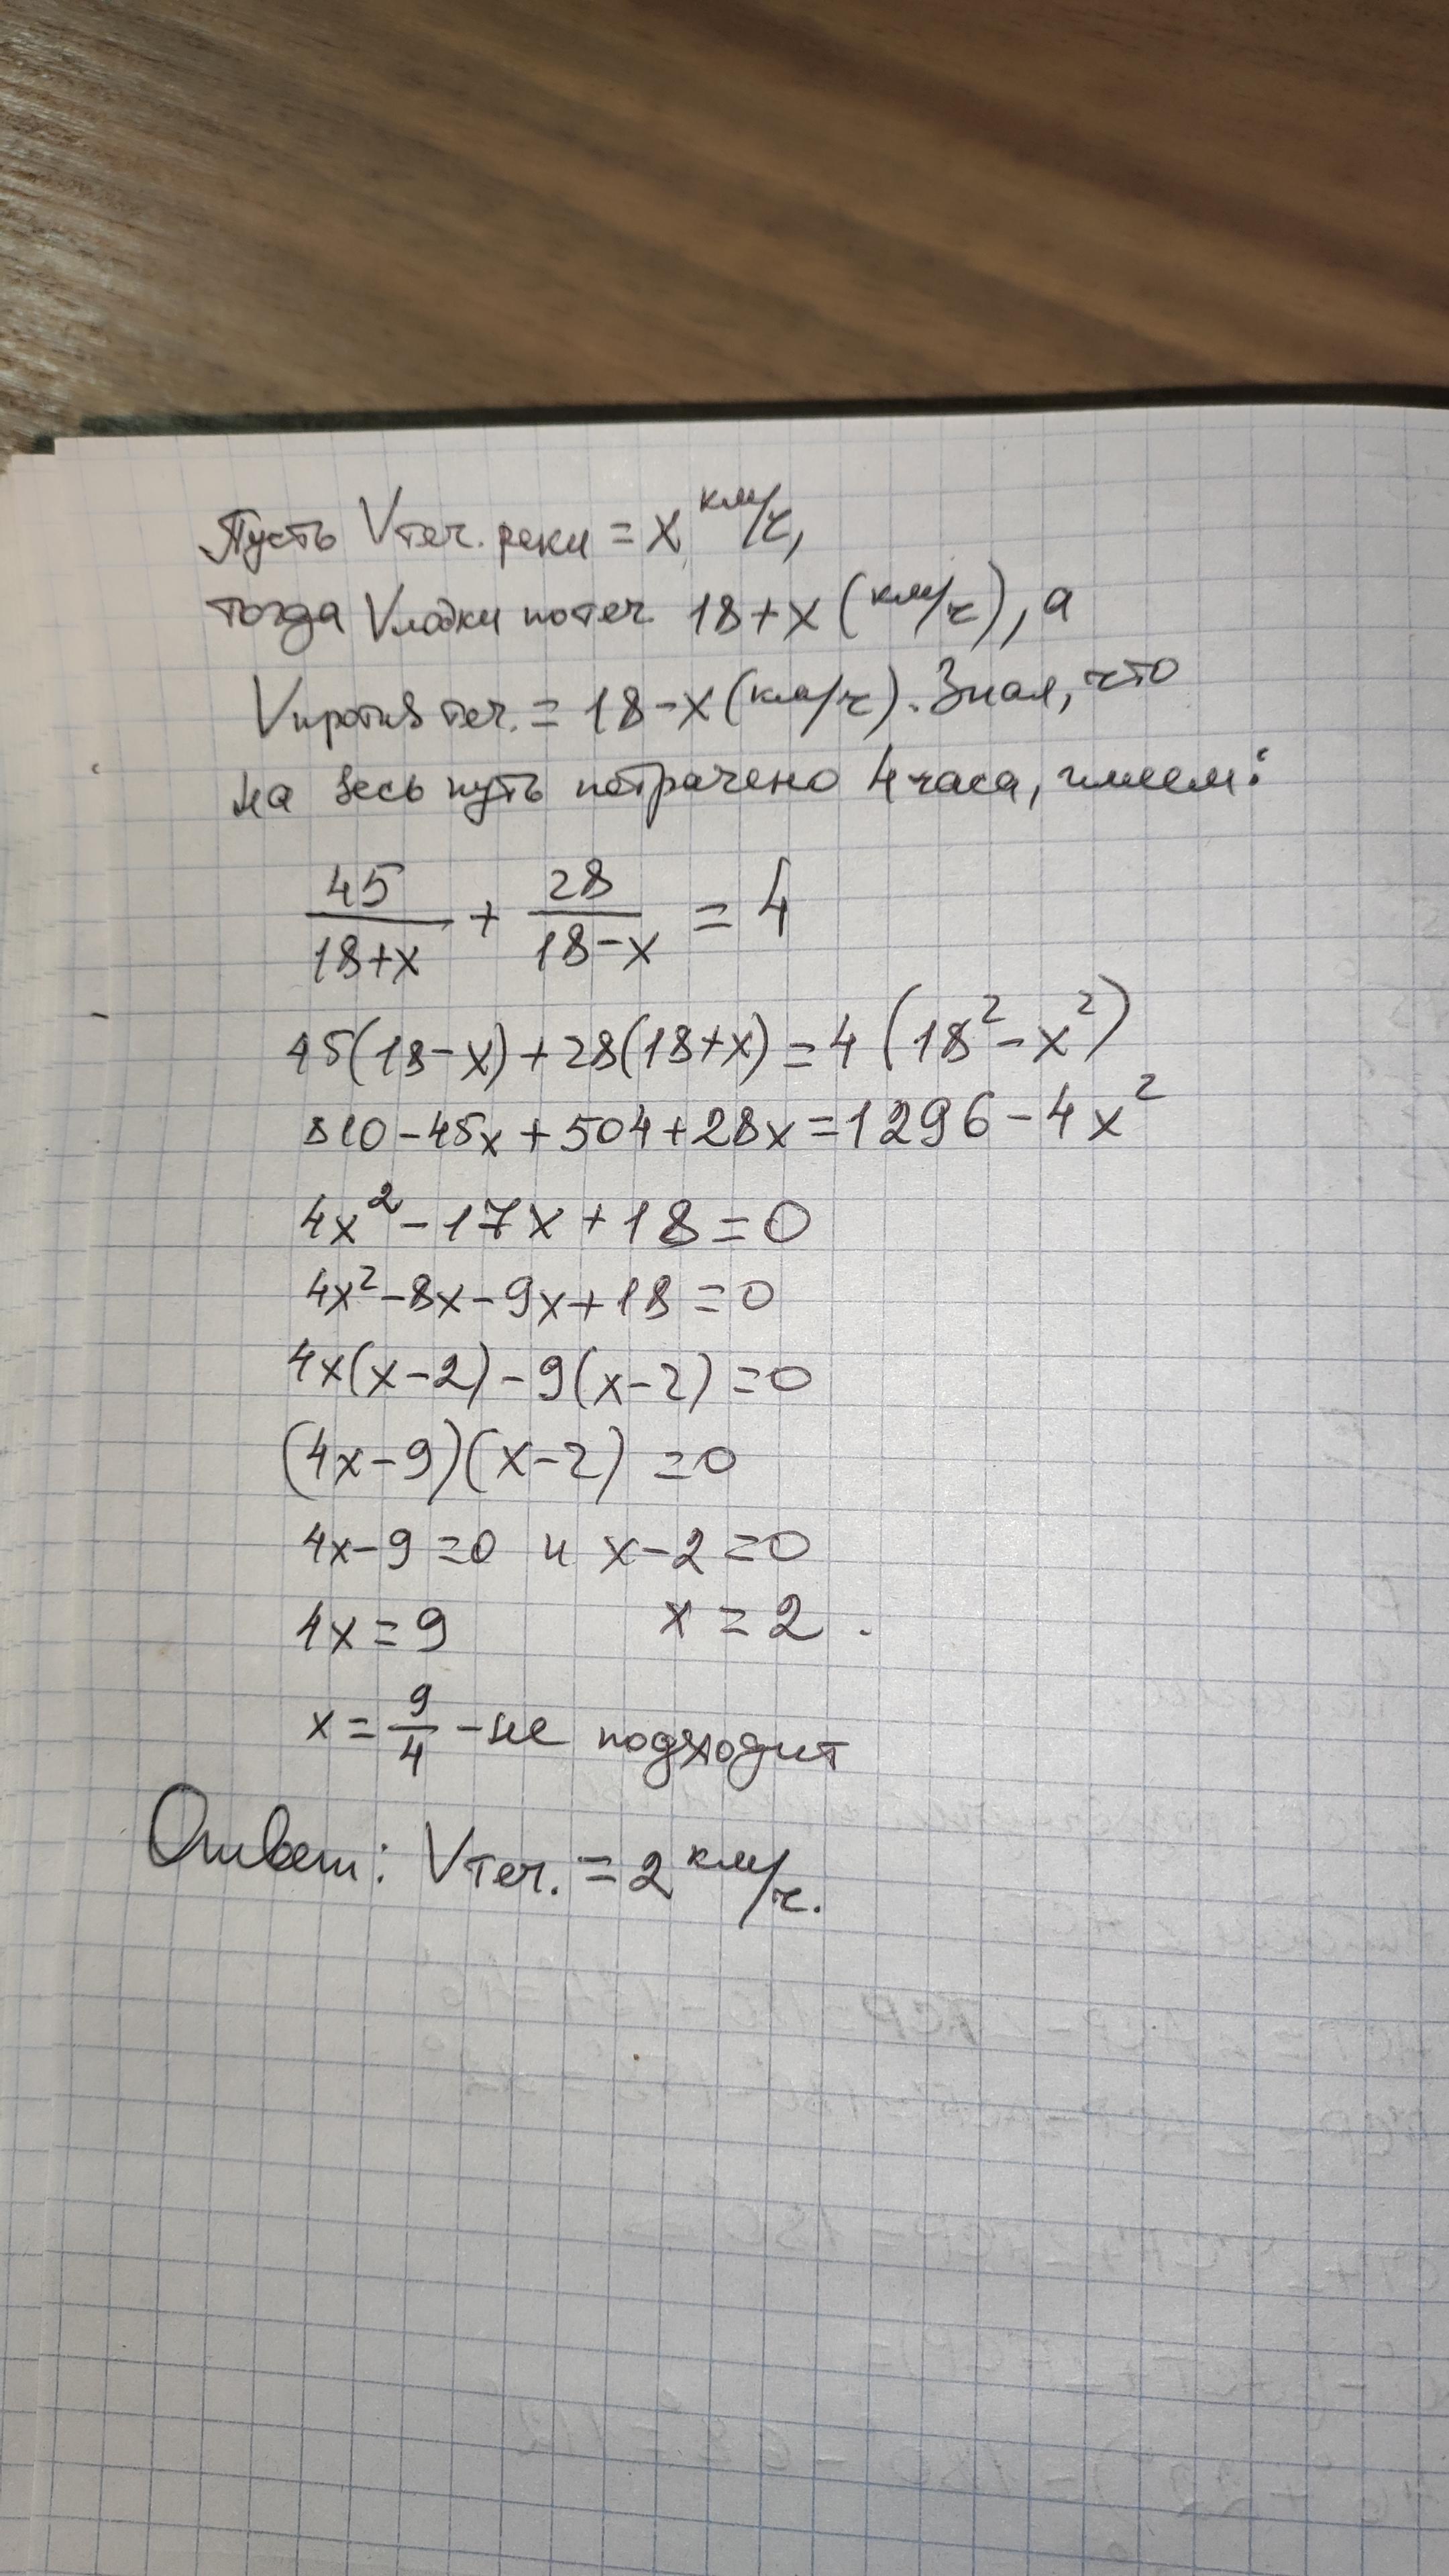 Пусть Vтеч. реки = x км/ч,
тогда Vлодки по теч. 18+x (км/ч), а
Vпротив теч. = 18-x (км/ч). Зная, что
на весь путь потрачено 4 часа, имеем:
45/(18+x) + 28/(18-x) = 4
45(18-x)+28(18+x)=4(18²-x²)
810-45x+504+28x=1296-4x²
4x²-17x+18=0
4x²-8x-9x+18=0
4x(x-2)-9(x-2)=0
(4x-9)(x-2)=0
4x-9=0 и x-2=0
4x=9 x=2.
x=9/4 - не подходит
Ответ: Vтеч. = 2 км/ч.